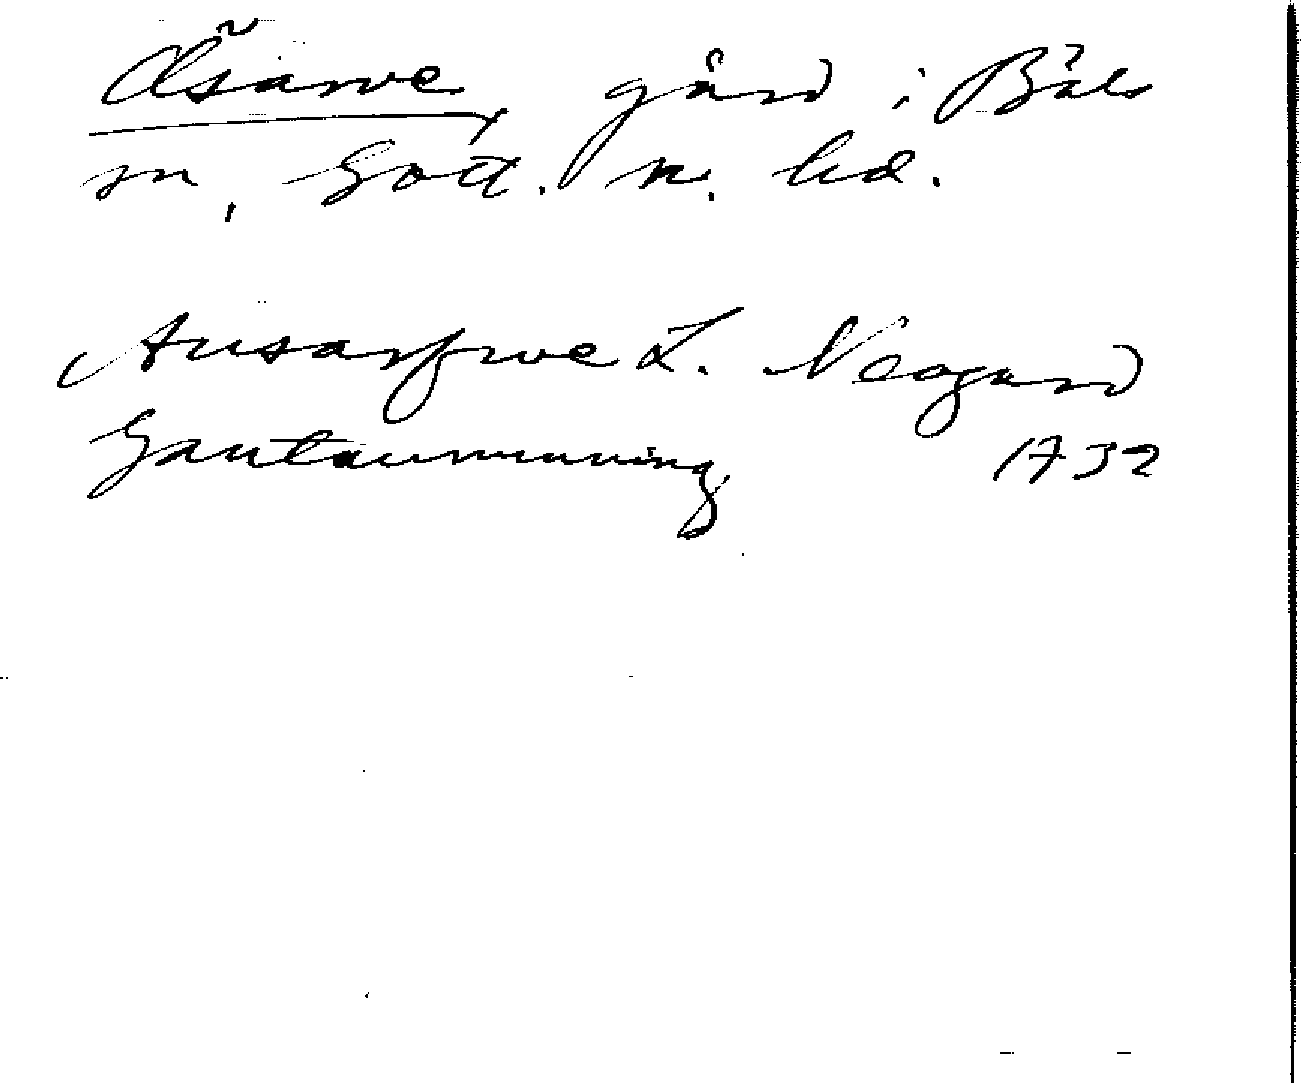 Åsarve, gård i Bäls
sn, Gotl. n. hd.
Ausarfwe L. Neogard
Gautauminning 1732